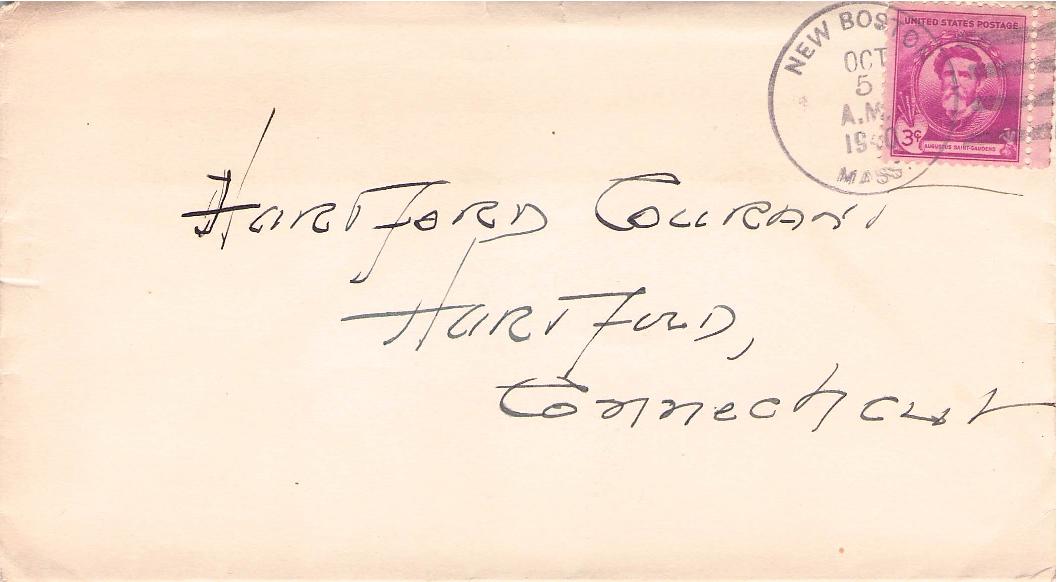 NEW BOSTON
OCT
5
A.M.
1940
MASS.
UNITED STATES POSTAGE
3¢
AUGUSTUS SAINT-GAUDENS
HARTFORD COURANT
HARTFORD,
Connecticut